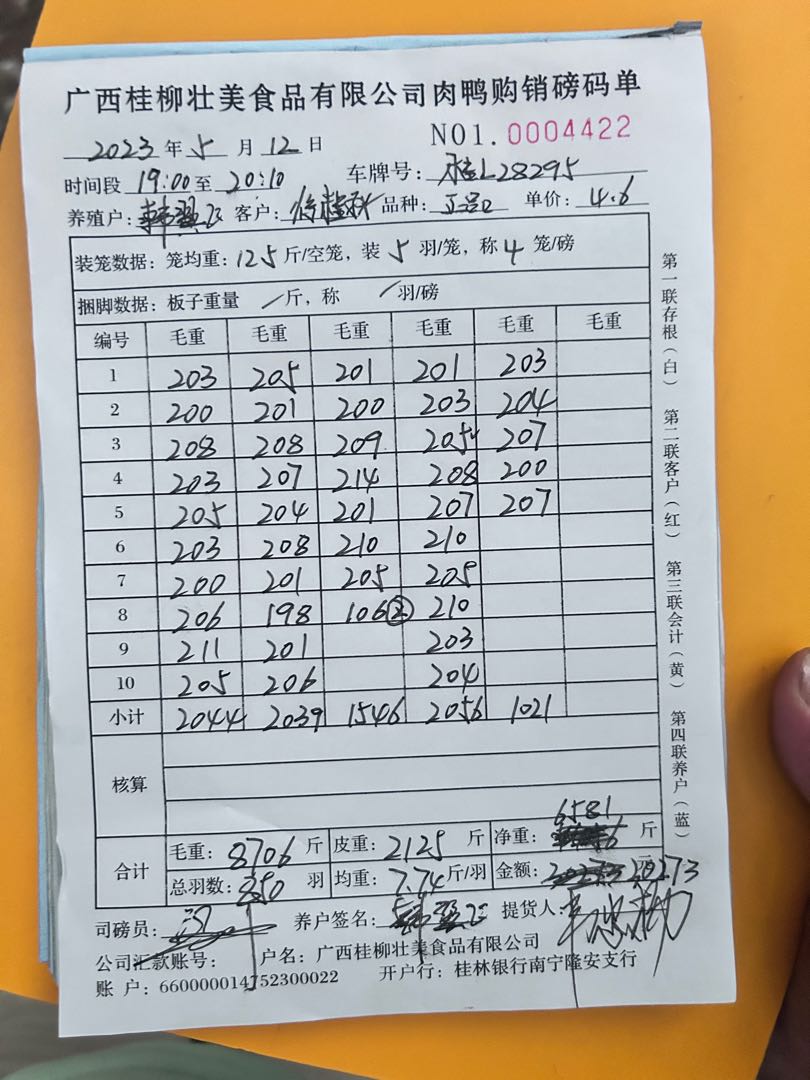 广西桂柳壮美食品有限公司肉鸭购销磅码单
2023 年 5 月 12 日 NO1. 0004422
时间段 19:00 至 20:10 车牌号: 桂L28295
养殖户: 客户: 品种: 单价: 4.6
装笼数据: 笼均重: 12.5 斤/空笼, 装 5 羽/笼, 称 4 笼/磅
捆脚数据: 板子重量 / 斤, 称 / 羽/磅
编号 毛重 毛重 毛重 毛重 毛重 毛重
1 203 205 201 201 203
2 200 201 200 203 204
3 208 208 209 205 207
4 203 207 214 208 200
5 205 204 201 207 207
6 203 208 210 210
7 200 201 205 205
8 206 198 106② 210
9 211 201 203
10 205 206 204
小计 2044 2039 1546 2056 1021
核算
合计 毛重: 8706 斤 皮重: 2125 斤 净重: 6581 斤
总羽数: 850 羽 均重: 7.74 斤/羽 金额: 30273
司磅员: 养户签名: 提货人:
公司汇款账号: 户名: 广西桂柳壮美食品有限公司
账 户: 660000014752300022 开户行: 桂林银行南宁隆安支行
第一联存根(白) 第二联客户(红) 第三联会计(黄) 第四联养户(蓝)